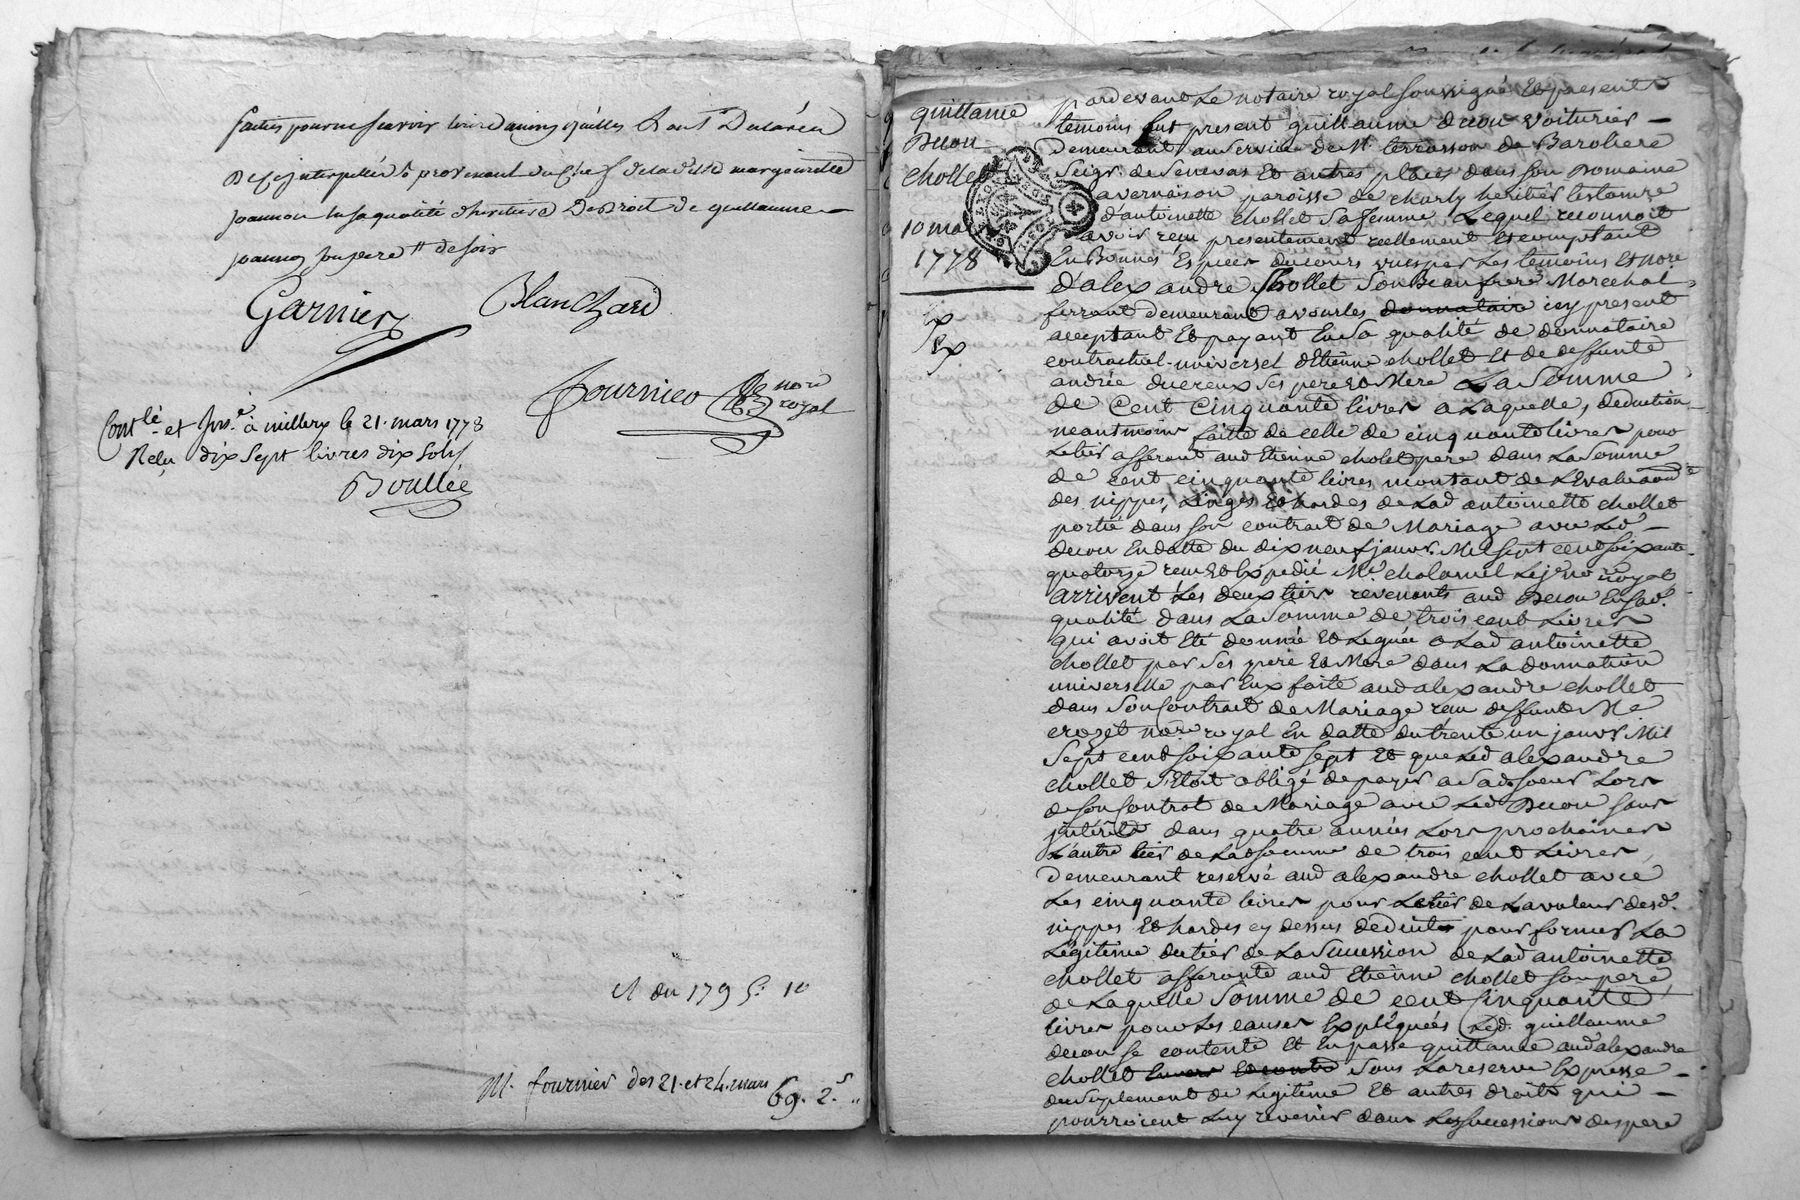 faittes pour ne sçavoir
De ce interpellés & provenant du chef de laditte margueritte
joannon en sa qualité d'heritiere De Droit de guillaume
joannon son pere
Garnier
Blanchard
fournier
no.re
royal
Cont.lé et Ins.é à millery le 21. mars 1778
Reçu dix Sept livres dix Sols
Boullée
M. fournier des 21. et 24. mars
69. 2.s
quittance
Decou
chollet
10 mai
1778
Ex
pardevant Le notaire royal soussigné Et presents
temoins fut present guillaume decou voiturier
demeurant au service de Mr. terrasson de Baroliere
Seigr. de Senevas Et autres places dans son Domaine
a vernaison paroisse de charly heritier testam.re
d'antoinette chollet sa femme Lequel reconnoit
avoir reçu presentement réellement Et comptant
En Bonnes Especes du cours vues par Les temoins Et no.re
d'alexandre Chollet Son Beau frere Marechal
ferrant demeurant a vourles donnataire icy present
acceptant Et payant En Sa qualité de donnataire
contractuel universel d'Etienne chollet Et de deffunte
andrée ducreux ses pere Et Mere La Somme
de Cent Cinquante livres a Laquelle, deduction
neantmoins faitte de celle de cinquante livres pour
Le tiers afferant aud Etienne cholet pere dans La Somme
de cent cinquante livres montant de L'Evaluaon
des nippes, Linges Et hardes de Lad antoinette chollet
porté dans son contrat de Mariage avec Led
decou En datte du dix neuf janvr. Mil Sept cent soixante
quatorze reçu Et Expedié Me. cholamel Le je no.re royal
arrivent Les deux tiers revenants aud Decou En sad.
qualité dans La Somme de trois cent Livres
qui avoit Eté donnée Et Leguée a Lad antoinette
chollet par ses pere Et Mere dans La donnation
universelle par Eux faite aud alexandre chollet
dans son Contrait de Mariage reçu deffunt Me
crozet no.re royal En datte du trente un janvr. Mil
Sept cent soixante sept Et que Led alexandre
chollet s'Etoit obligé de payer a Sad. soeur Lors
de son Contrat de Mariage avec Led Decou sans
jnterêts dans quatre années Lors prochaines
L'autre tiers de Lad somme de trois cent Livres
demeurant reservé aud alexandre chollet avec
Les cinquante livres pour Le tiers de La valeur desd.
nippes Et hardes cy dessus deduites pour former La
Légitime du tiers de La Succession de Lad antoinette
chollet afferante aud Etienne chollet son pere,
de Laquelle Somme de cent Cinquante
livres pour Les causes Expliquées Led. guillaume
decou se contente Et En passe quittance aud alexandre
chollet Sous La reserve Expresse
du suplement de Légitime Et autres droits qui
pourroient Luy revenir dans Les successions des pere